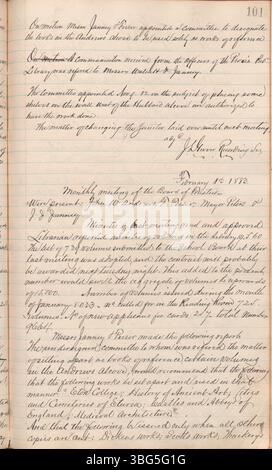 101
On motion Messrs Janney & Greer appointed a committee to designate
the books in the Andrews alcove to be used solely as works of reference
On motion A communication received from the officers of the Peoria Pub.
Library was referred to Messrs Walsh & Janney.
The committee appointed Aug. 12 on the subject of placing some
shelves on the wall west of the Hubbard alcove are authorized to
have the work done.
The matter of changing the Janitor laid over until next meeting
adjd
J. L. Greer Recording Sec
February 1st 1883.
Monthly meeting of the Board of Directors
Were present
J S Janney
Minutes of last meeting read and approved
Librarian reported
The list of 72 volumes submitted to the School Board at their
last meeting was adopted, and the contract will probably
be awarded next Tuesday night. This added to the present
number would swell the aggregate volumes to upwards
of
Number of volumes issued during the month
of January 1883,
in the Reading Room 725
volumes No of new applications for cards 217 total number
9664.
Messrs Janney & Greer made the following report
The undersigned committee to whom was referred the matter
of setting apart as books of reference certain volumes
in the Andrews alcove, would recommend that the following
that the following works be set apart and used in that
manner. Eton College, History of Ancient Art, Cities
and Cemeteries of Etruria, Castles and Abbeys of
England, Medieval Architecture
And that the following be issued only when all other
copies are out: Dickens works, Scotts Works, Thackerays